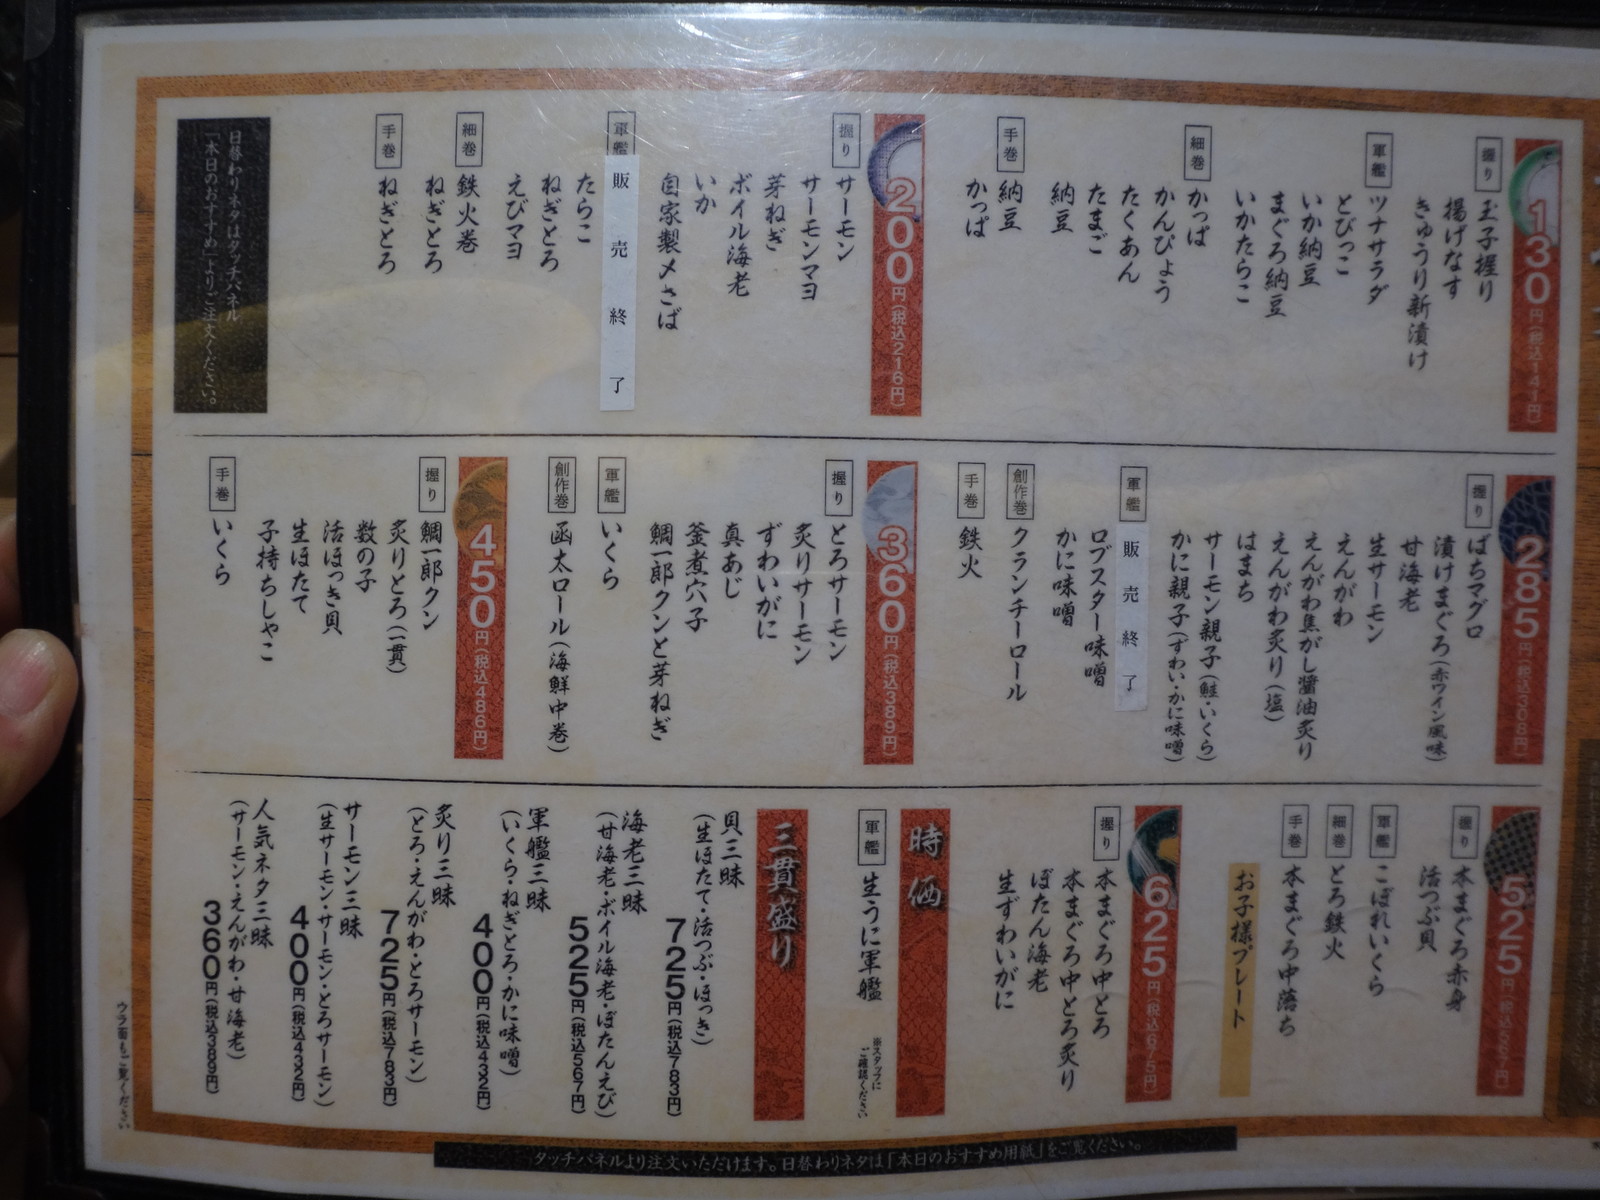 130円(税込141円)
握り
玉子握り
揚げなす
きゅうり新漬け
軍艦
ツナサラダ
とびっこ
いか納豆
まぐろ納豆
いかたらこ
細巻
かっぱ
かんぴょう
たくあん
たまご
納豆
手巻
納豆
かっぱ
200円(税込216円)
握り
サーモン
サーモンマヨ
芽ねぎ
ボイル海老
いか
自家製〆さば
軍艦
販売終了
たらこ
ねぎとろ
えびマヨ
細巻
鉄火巻
ねぎとろ
手巻
ねぎとろ
日替わりネタはタッチパネル
「本日のおすすめ」よりご注文ください。
285円(税込308円)
握り
ばちマグロ
漬けまぐろ(赤ワイン風味)
甘海老
生サーモン
えんがわ
えんがわ焦がし醤油炙り
えんがわ炙り(塩)
はまち
サーモン親子(鮭・いくら)
かに親子(ずわい・かに味噌)
軍艦
販売終了
ロブスター味噌
かに味噌
創作巻
クランチーロール
手巻
鉄火
360円(税込389円)
握り
とろサーモン
炙りサーモン
ずわいがに
真あじ
釜煮穴子
鯛一郎クンと芽ねぎ
軍艦
いくら
創作巻
函太ロール(海鮮中巻)
450円(税込486円)
握り
鯛一郎クン
炙りとろ(一貫)
数の子
活ほっき貝
生ほたて
子持ちしゃこ
手巻
いくら
525円(税込567円)
握り
本まぐろ赤身
活つぶ貝
軍艦
こぼれいくら
細巻
とろ鉄火
手巻
本まぐろ中落ち
お子様プレート
625円(税込675円)
握り
本まぐろ中とろ
本まぐろ中とろ炙り
ぼたん海老
生ずわいがに
時価
軍艦
生うに軍艦
※スタッフに
ご確認ください
三貫盛り
貝三昧
(生ほたて・活つぶ・ほっき)
725円(税込783円)
海老三昧
(甘海老・ボイル海老・ぼたんえび)
525円(税込567円)
軍艦三昧
(いくら・ねぎとろ・かに味噌)
400円(税込432円)
炙り三昧
(とろ・えんがわ・とろサーモン)
725円(税込783円)
サーモン三昧
(生サーモン・サーモン・とろサーモン)
400円(税込432円)
人気ネタ三昧
(サーモン・えんがわ・甘海老)
360円(税込389円)
ウラ面もご覧ください
タッチパネルより注文いただけます。日替わりネタは「本日のおすすめ用紙」をご覧ください。